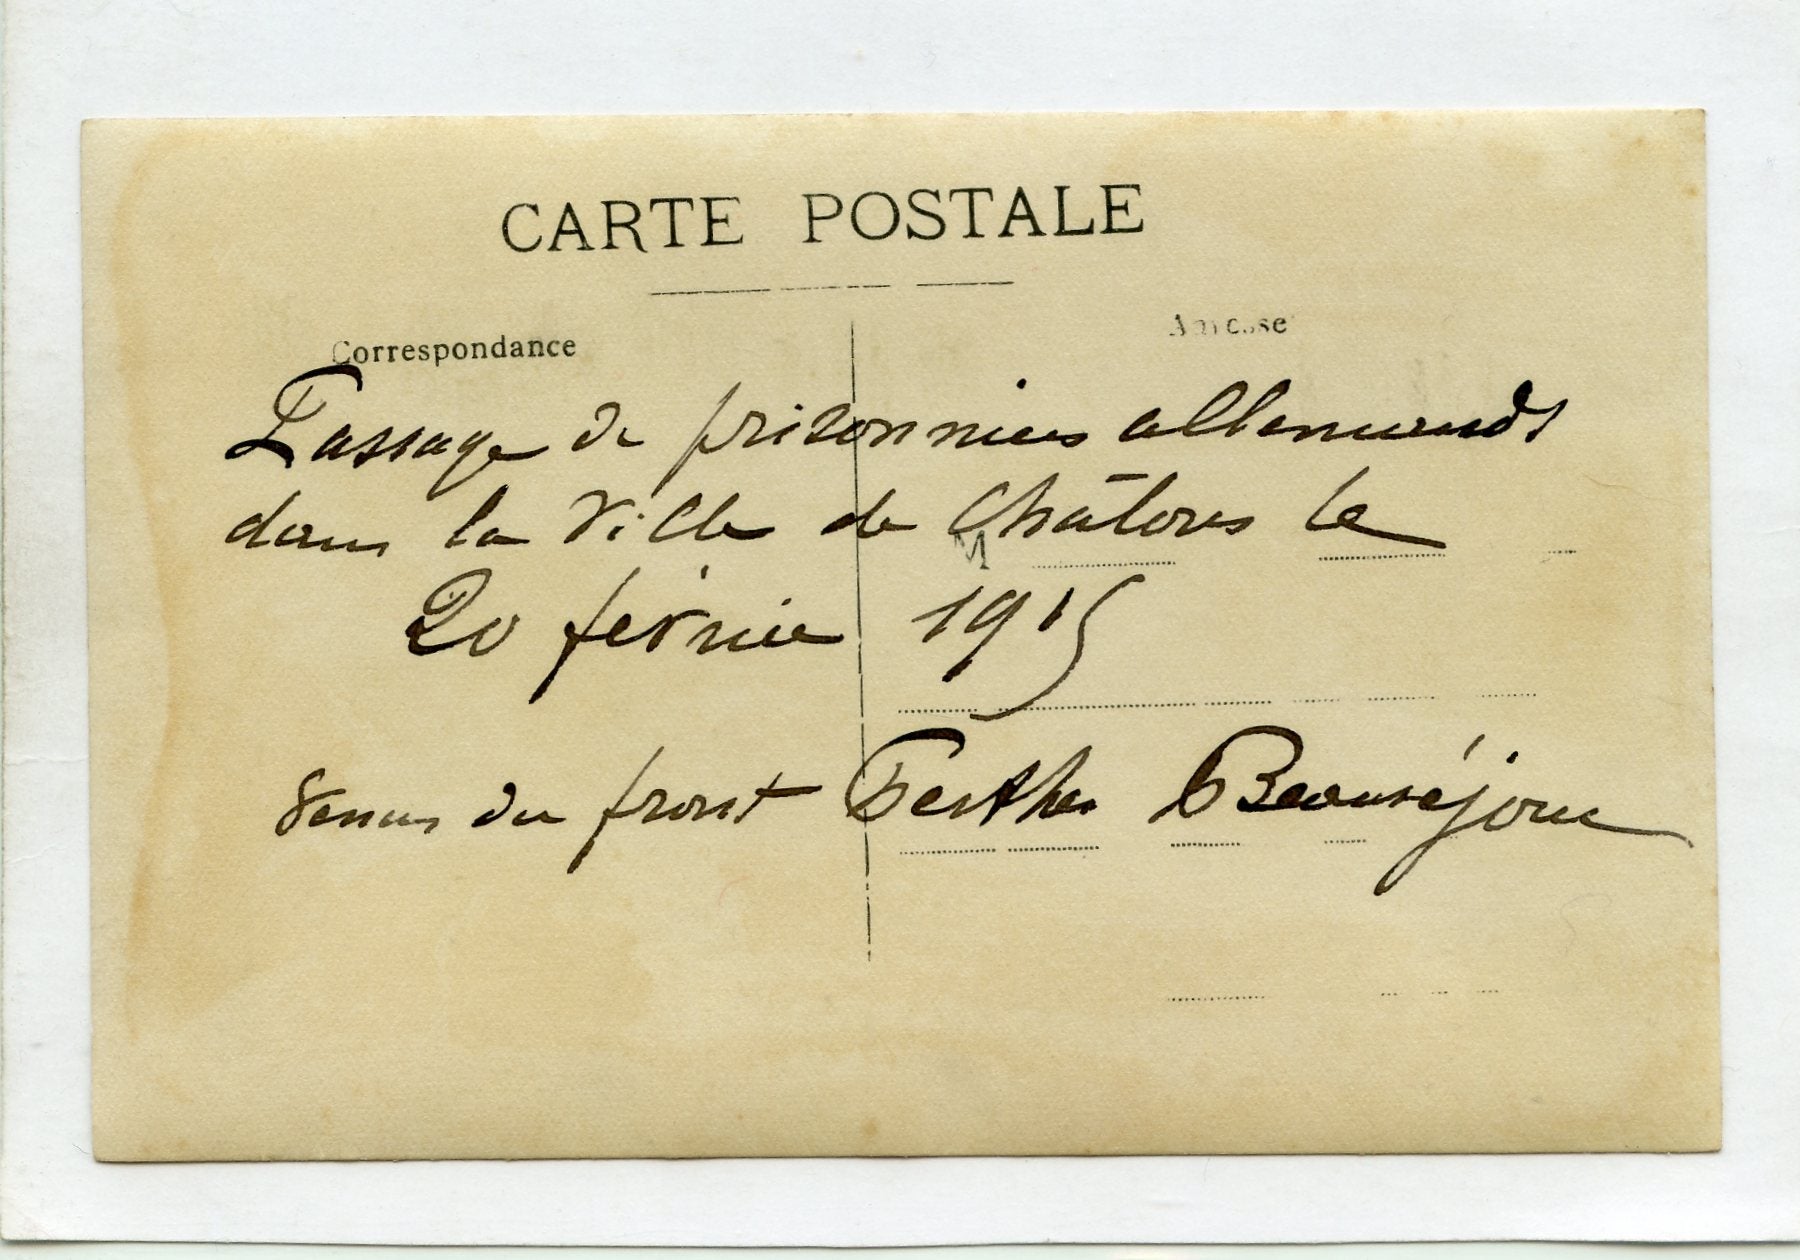 CARTE POSTALE
Correspondance
Adresse
Passage de prisonniers allemands
dans la Ville de Châlons le
M
20 février 1915
venus du front Perthes Beauséjour